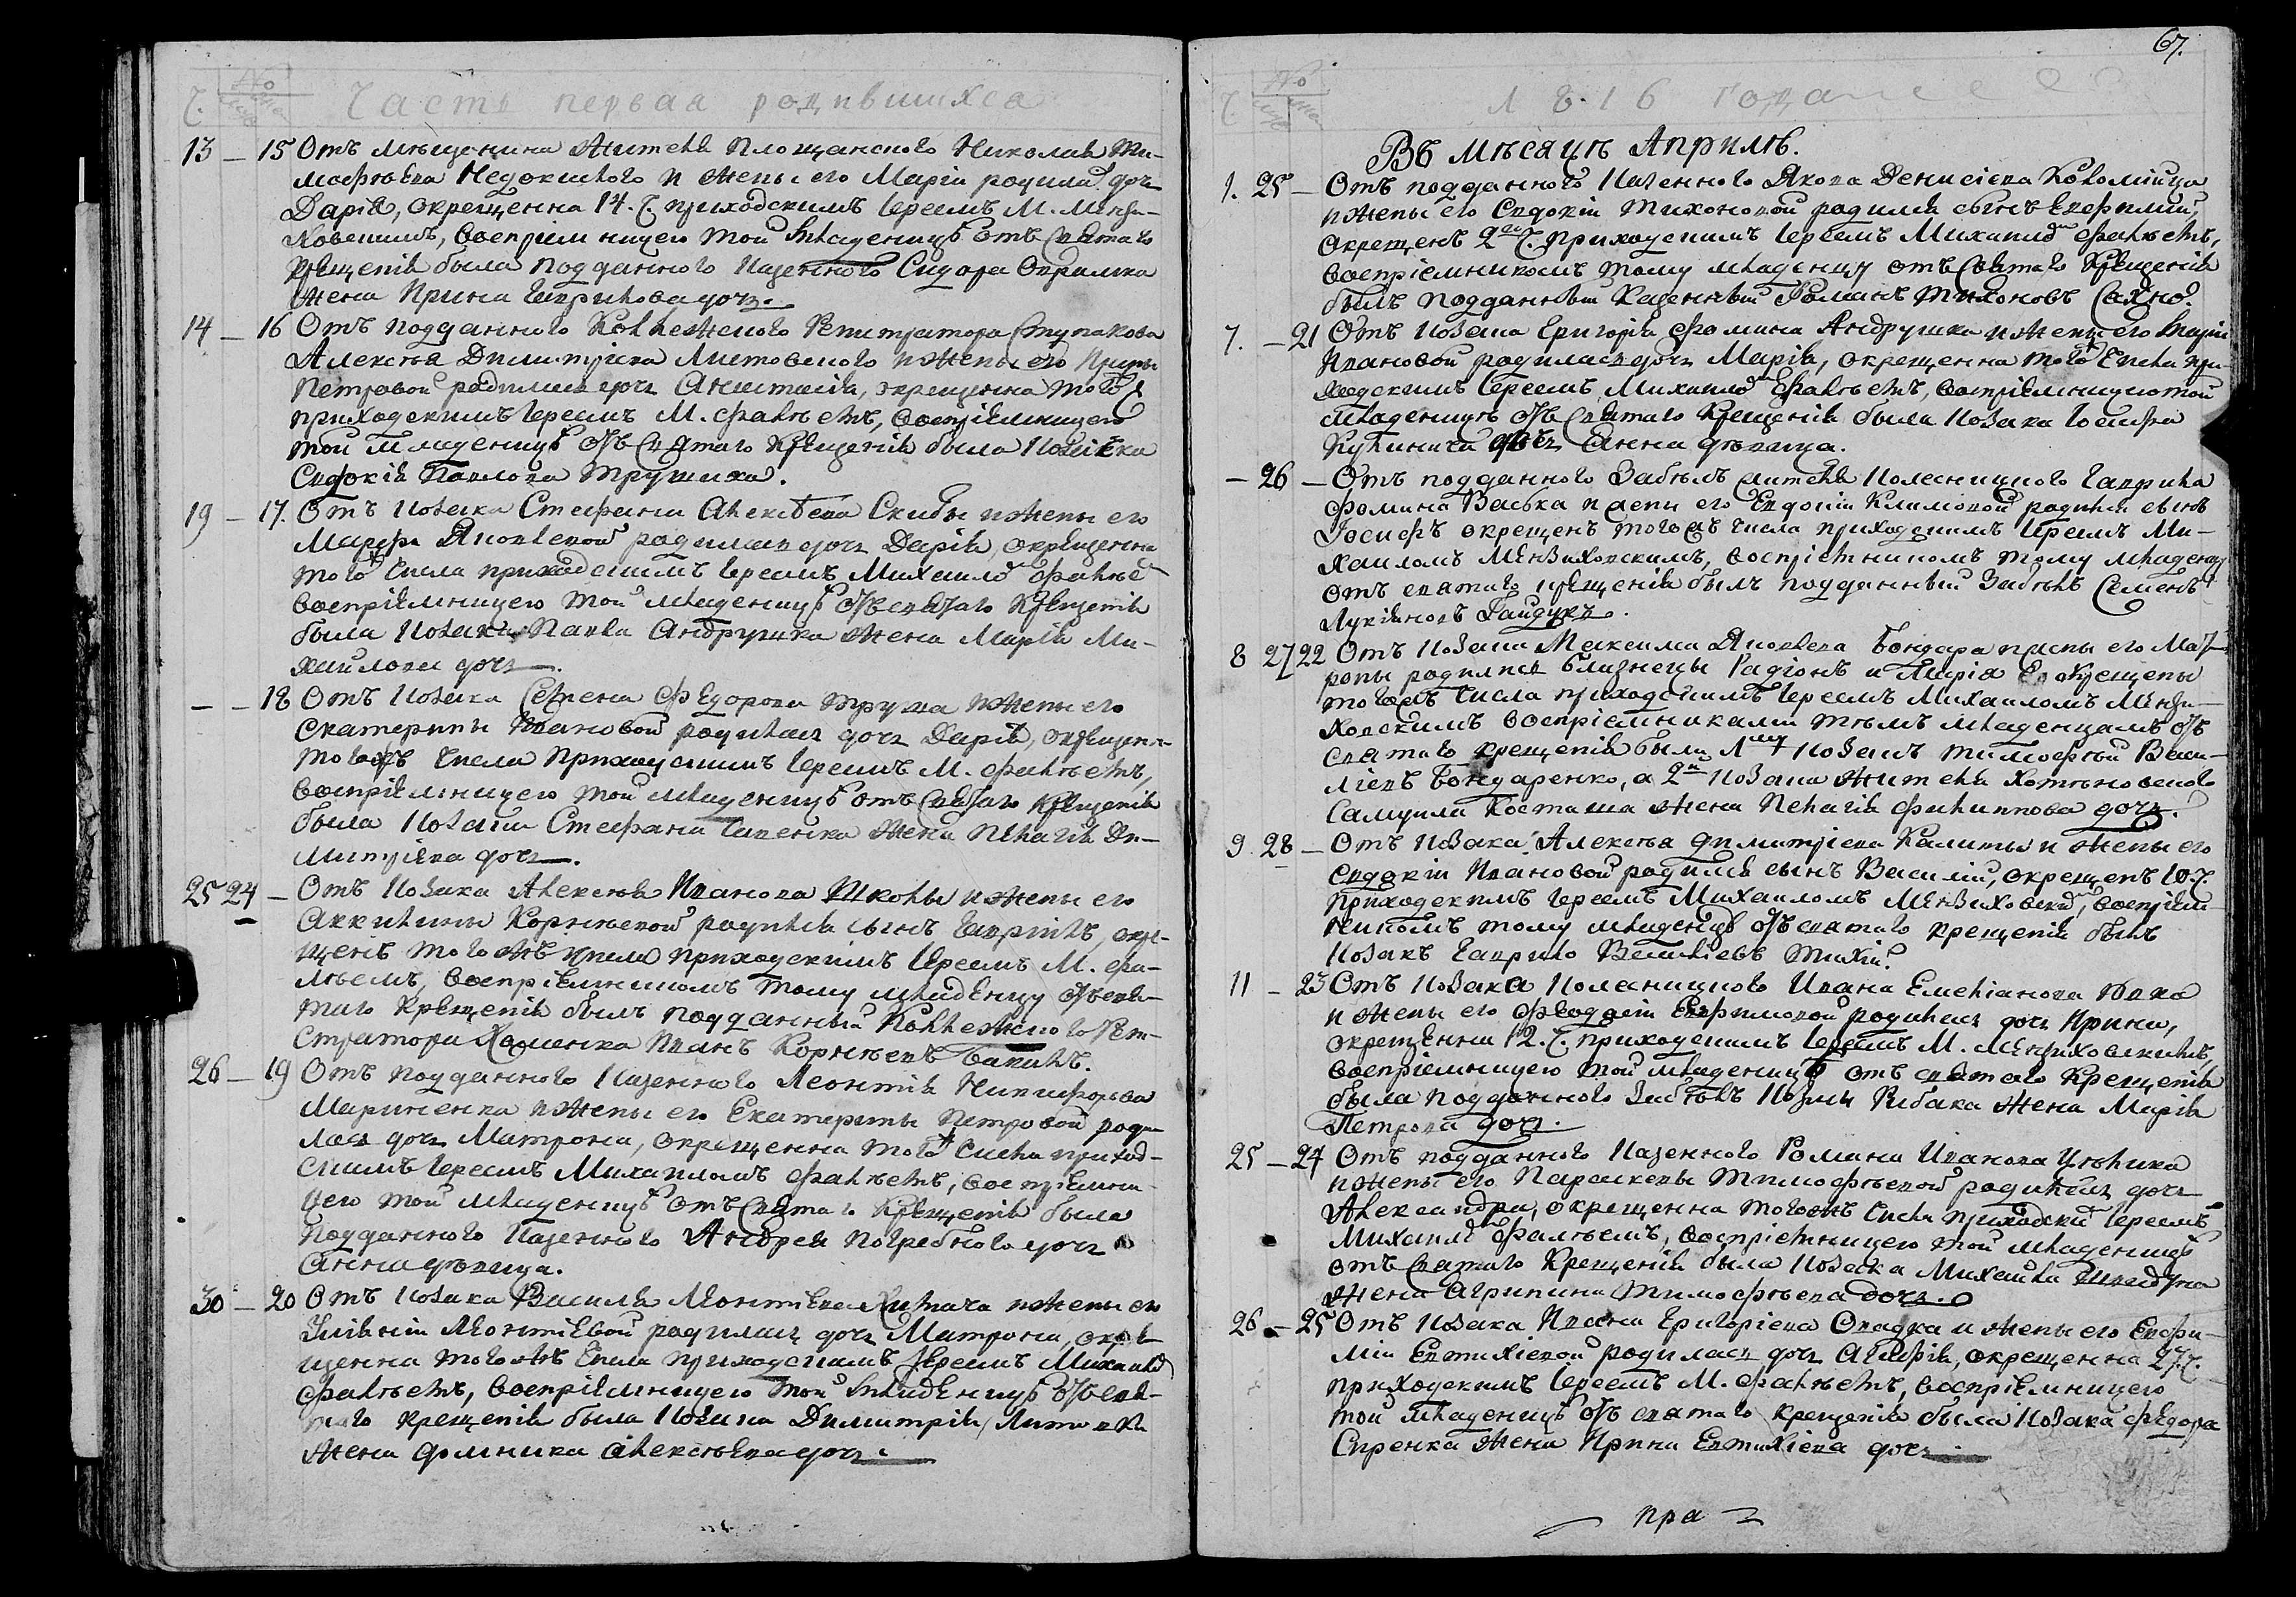 Часть первая родившихся
13 – 15 Отъ мещенина жителя Площанского Николая Ти-
мофѣева и жены его Маріи родилась дочь
Дарія, окрещенна 14. ч. приходскимъ Іереемъ М. Менжи-
ховскимъ, воспріемницею той младеницѣ отъ Святаго
Крещенія была подданного казенного Сидора
жена Ирина Гаврилова дочь.
14 – 16 Отъ подданного Коллежского Регистратора Ступакова
Алексѣя Димитріева Литовского и жены его Ирины
Петровой родилась дочь Анастасія, окрещенна того ж ч
приходскимъ Іереемъ М. Фалѣемъ, воспріемницею
той младеницѣ отъ Святаго Крещенія была козачка
Евдокія Павлова Трушиха.
19 – 17. Отъ козака Стефана Алексѣева Скибы и жены его
Марфы Яковлевой родилась дочь Дарія, окрещенна
того ж числа приходскимъ Іереемъ Михаиломъ Фалѣемъ
воспріемницею той младеницѣ отъ святаго Крещенія
была козака Павла Андрушка жена Марія Ми-
хаилова дочь.
– – 18 Отъ козака Семена Федорова Труша и жены его
Екатерины Ивановой родилась дочь Дарія, окрещенна
того жъ числа приходскимъ Іереемъ М. Фалѣемъ,
воспріемницею той младеницѣ отъ Святаго Крещенія
была козака Стефана жена Пелагія Ди-
митріева дочь.
25 24 – Отъ козака Алексѣя Иванова Школы и жены его
Акилины Корнѣевой родился сынъ Гавріилъ, окре-
щенъ того жъ числа приходскимъ Іереемъ М. Фа-
лѣемъ, воспріемникомъ тому младенцу отъ свя-
таго Крещенія былъ подданный Коллежского Реги-
стратора Хоменка Иванъ Корнѣевъ
26 – 19 Отъ подданного казенного Леонтія Никифорова
Мариненка и жены его Екатерины Петровой роди-
лась дочь Матрона, окрещенна того ж числа приход-
скимъ Іереемъ Михаиломъ Фалѣемъ, воспріемни-
цею той младеницѣ отъ Святаго Крещенія была
подданного казенного Андрея Погребного дочь
Анна дѣвица.
30 – 20 Отъ козака Василія Леонтіева и жены его
Уліаніи Леонтіевой родилась дочь Матрона, окре-
щенна того жъ числа приходскимъ Іереемъ Михаиломъ
Фалѣемъ, воспріемницею той младеницѣ отъ свя-
таго крещенія была козака Димитрія
жена Домникія Алексѣева дочь.
67.
1816 года
Въ мѣсяцѣ Априлѣ.
1. 25 – Отъ подданного казенного Якова Денисіева Коломійца
и жены его Евдокіи Тихоновой родился сынъ Евфимій,
окрещенъ 2го ч. приходскимъ Іереемъ Михаиломъ Фалѣемъ,
воспріемникомъ тому младенцу отъ Святаго Крещенія
былъ подданный казенный Романъ Тихоновъ Сахно.
7. – 21 Отъ козака Григорія Фомина Андрушка и жены его Маріи
Ивановой родилась дочь Марія, окрещенна того ж числа при-
ходскимъ Іереемъ Михаиломъ Фалѣемъ, воспріемницею той
младеницѣ отъ Святаго Крещенія была козака Іосифа
дочь Анна дѣвица.
– 26 – Отъ подданного Забѣлъ жителя Колесницкого Гаврила
Фомина Васька и жены его Евдокіи Климовой родился сынъ
Іосифъ окрещенъ того жъ числа приходскимъ Іереемъ Ми-
хаиломъ Менжиховскимъ, воспріемникомъ тому младенцу
отъ святаго крещенія былъ подданный Забѣлъ Семенъ
Лукіановъ Гайдукъ.
8 27 22 Отъ козака Максима Яковлева Бондара и жены его Мат-
роны родились близнецы Радіонъ и Марія крещены
того жъ числа приходскимъ Іереемъ Михаиломъ Менжи-
ховскимъ воспріемниками тѣмъ младенцамъ отъ
святаго крещенія были 1му козакъ Тимофѣй Васи-
ліевъ Бондаренко, а 2й козака жителя Хотѣновского
Самуила Косташа жена Пелагія Филиппова дочь.
9. 28 – Отъ козака Алексѣя Димитріева Калиты и жены его
Евдокіи Ивановой родился сынъ Василій, окрещенъ 10. ч.
приходскимъ Іереемъ Михаиломъ Менжиховскимъ, воспріем-
никомъ тому младенцу отъ святаго крещенія былъ
козакъ Гаврило Василіевъ Тихій.
11 – 23 Отъ козака Колесницкого Ивана Емеліанова
и жены его Феодосіи Евфимовой родилась дочь Ирина,
окрещенна 12. ч. приходскимъ Іереемъ М. Менжиховскимъ,
воспріемницею той младеницѣ отъ святаго Крещенія
была подданного Забѣлъ Козмы Рибака жена Марія
Петрова дочь.
25 – 24 Отъ подданного казенного Романа Иванова Цѣлика
и жены его Параскевы Тимофѣевой родилась дочь
Александра, окрещенна того жъ числа приходскимъ Іереемъ
Михаиломъ Фалѣемъ, воспріемницею той младеницѣ
отъ Святаго Крещенія была козака Михаила
жена Агрипина Тимофѣева дочь.
26 – 25 Отъ козака Ивана Григоріева и жены его Евфи-
міи Евтихіевой родилась дочь Агафія, окрещенна 27. ч.
приходскимъ Іереемъ М. Фалѣемъ, воспріемницею
той младеницѣ отъ святаго крещенія была козака Федора
Спренка жена Ирина Евтихіева дочь
пра